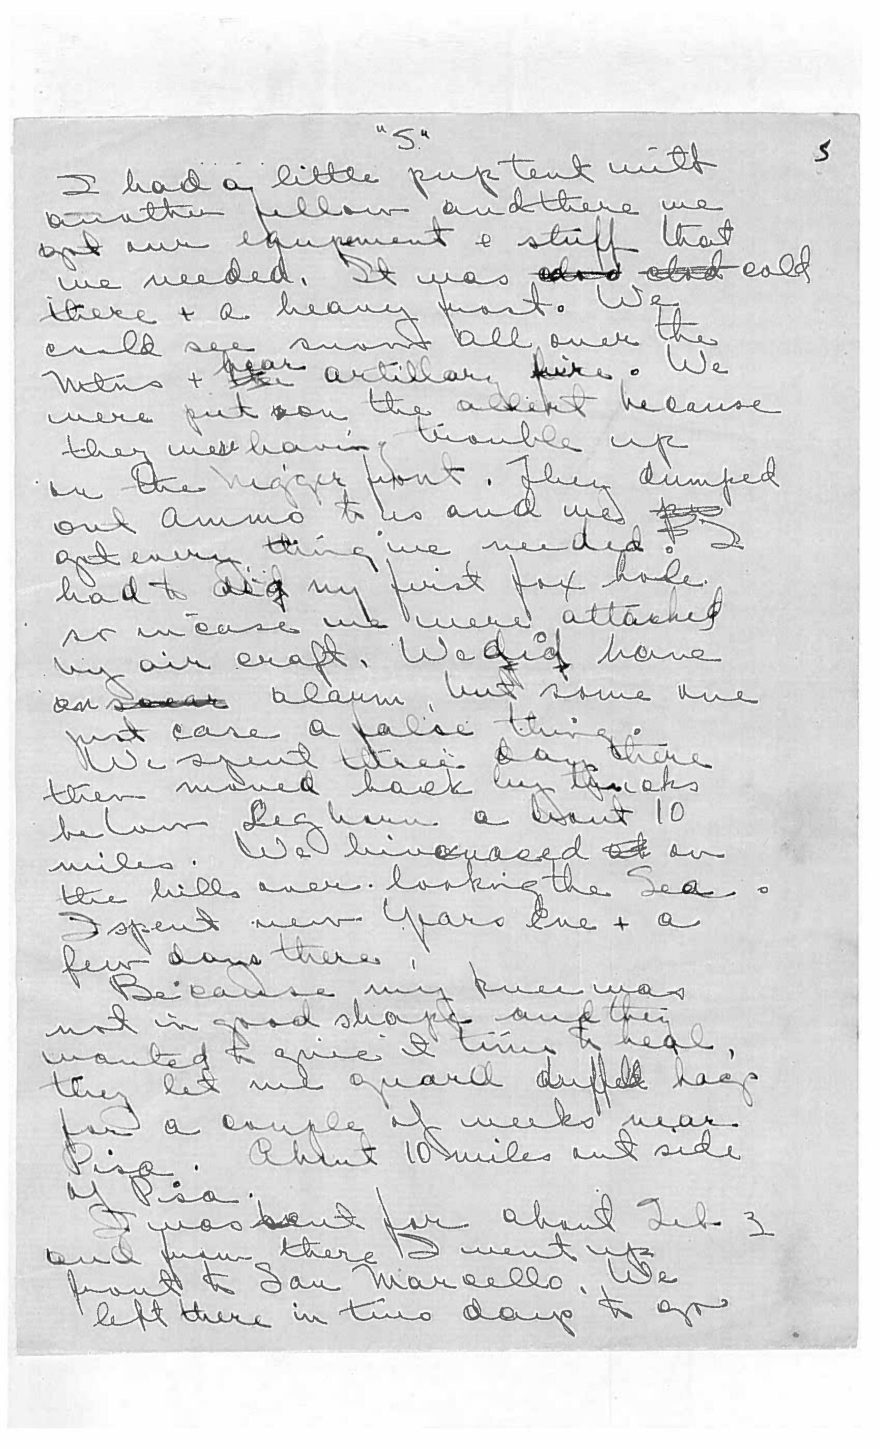 "5"
5
I had a little pup tent with
another fellow and there we
got our equipment & stuff that
we needed. It was cold
there + a heavy frost. We
could see snow all over the
Mtns + hear artillary fire. We
were put on the allert because
they were having trouble up
on the nigger front. They dumped
out Ammo to us and we
got every thing we needed. I
had to dig my first fox hole.
so incase we were attacked
by air craft. We did have
an alarm, but some one
just case a false thing.
We spent three days there
then moved back by trucks
below Leghorn about 10
miles. We bivouaced on
the hills over looking the Sea.
I spent new Years Eve + a
few days there.
Because my knee was
not in good shape and they
wanted to give it time to heal,
they let me guard duffell bags
for a couple of weeks near
Pisa. About 10 miles out side
of Pisa.
I was sent for about Feb 3
and from there I went up
front to San Marcello. We
left there in two days to go